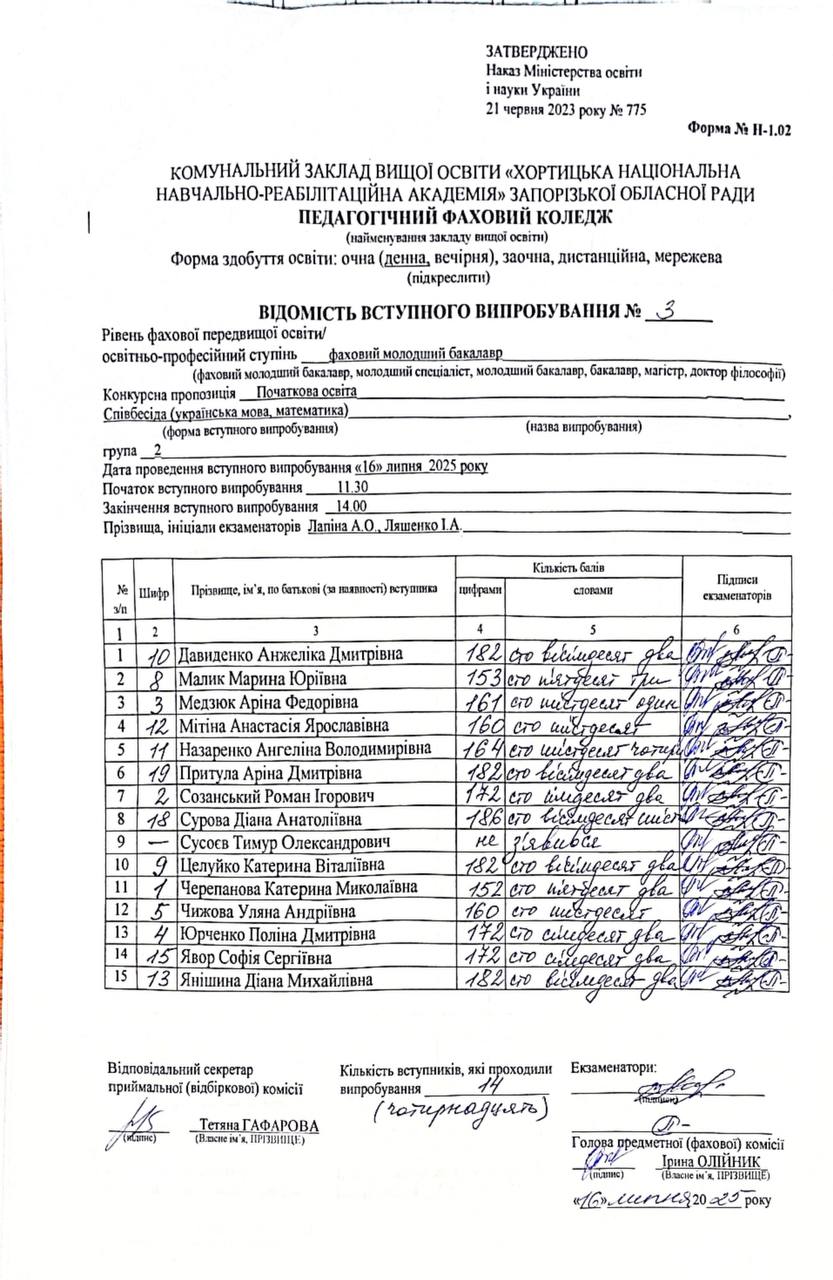 ЗАТВЕРДЖЕНО
Наказ Міністерства освіти
і науки України
21 червня 2023 року № 775
Форма № Н-1.02
КОМУНАЛЬНИЙ ЗАКЛАД ВИЩОЇ ОСВІТИ «ХОРТИЦЬКА НАЦІОНАЛЬНА
НАВЧАЛЬНО-РЕАБІЛІТАЦІЙНА АКАДЕМІЯ» ЗАПОРІЗЬКОЇ ОБЛАСНОЇ РАДИ
ПЕДАГОГІЧНИЙ ФАХОВИЙ КОЛЕДЖ
(найменування закладу вищої освіти)
Форма здобуття освіти: очна (денна, вечірня), заочна, дистанційна, мережева
(підкреслити)
ВІДОМІСТЬ ВСТУПНОГО ВИПРОБУВАННЯ № 3
Рівень фахової передвищої освіти/
освітньо-професійний ступінь фаховий молодший бакалавр
(фаховий молодший бакалавр, молодший спеціаліст, молодший бакалавр, бакалавр, магістр, доктор філософії)
Конкурсна пропозиція Початкова освіта
Співбесіда (українська мова, математика),
(форма вступного випробування) (назва випробування)
група 2
Дата проведення вступного випробування «16» липня 2025 року
Початок вступного випробування 11.30
Закінчення вступного випробування 14.00
Прізвища, ініціали екзаменаторів Лапіна А.О., Ляшенко І.А.
№ з/п Шифр Прізвище, ім’я, по батькові (за наявності) вступника Кількість балів цифрами словами Підписи екзаменаторів
1 2 3 4 5 6
1 10 Давиденко Анжеліка Дмитрівна 182 сто вісімдесят два
2 8 Малик Марина Юріївна 153 сто п'ятдесят три
3 3 Медзюк Аріна Федорівна 161 сто шістдесят один
4 12 Мітіна Анастасія Ярославівна 160 сто шістдесят
5 11 Назаренко Ангеліна Володимирівна 164 сто шістдесят чотири
6 19 Притула Аріна Дмитрівна 182 сто вісімдесят два
7 2 Созанський Роман Ігорович 172 сто сімдесят два
8 18 Сурова Діана Анатоліївна 186 сто вісімдесят шість
9 — Сусоєв Тимур Олександрович не з'явився
10 9 Целуйко Катерина Віталіївна 182 сто вісімдесят два
11 1 Черепанова Катерина Миколаївна 152 сто п'ятдесят два
12 5 Чижова Уляна Андріївна 160 сто шістдесят
13 4 Юрченко Поліна Дмитрівна 172 сто сімдесят два
14 15 Явор Софія Сергіївна 172 сто сімдесят два
15 13 Янішина Діана Михайлівна 182 сто вісімдесят два
Відповідальний секретар
приймальної (відбіркової) комісії
Тетяна ГАФАРОВА
(підпис) (Власне ім’я, ПРІЗВИЩЕ)
Кількість вступників, які проходили
випробування 14
(чотирнадцять)
Екзаменатори:
(підпис)
Голова предметної (фахової) комісії
Ірина ОЛІЙНИК
(підпис) (Власне ім’я, ПРІЗВИЩЕ)
«16» липня 2025 року